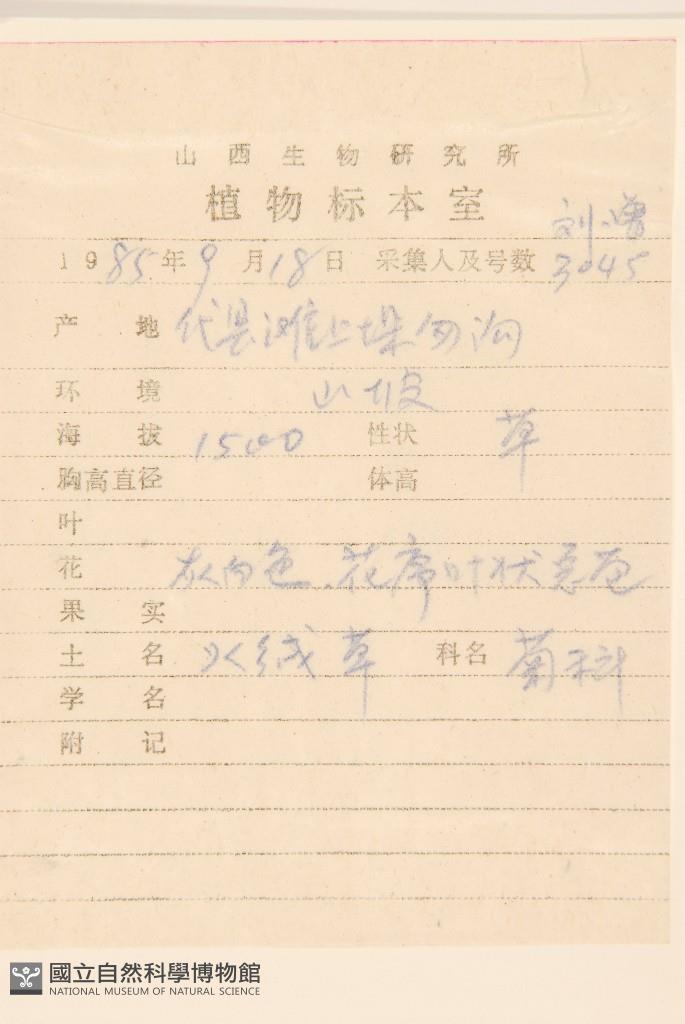 山西生物研究所
植物标本室
刘、曾
1985年9月18日 采集人及号数 3045
产地 代县滩上垛勿沟
环境 山坡
海拔 1500 性状 草
胸高直径 体高
叶
花 灰白色、花序叶状总苞
果实
土名 火绒草 科名 菊科
学名
附记
國立自然科學博物館
NATIONAL MUSEUM OF NATURAL SCIENCE